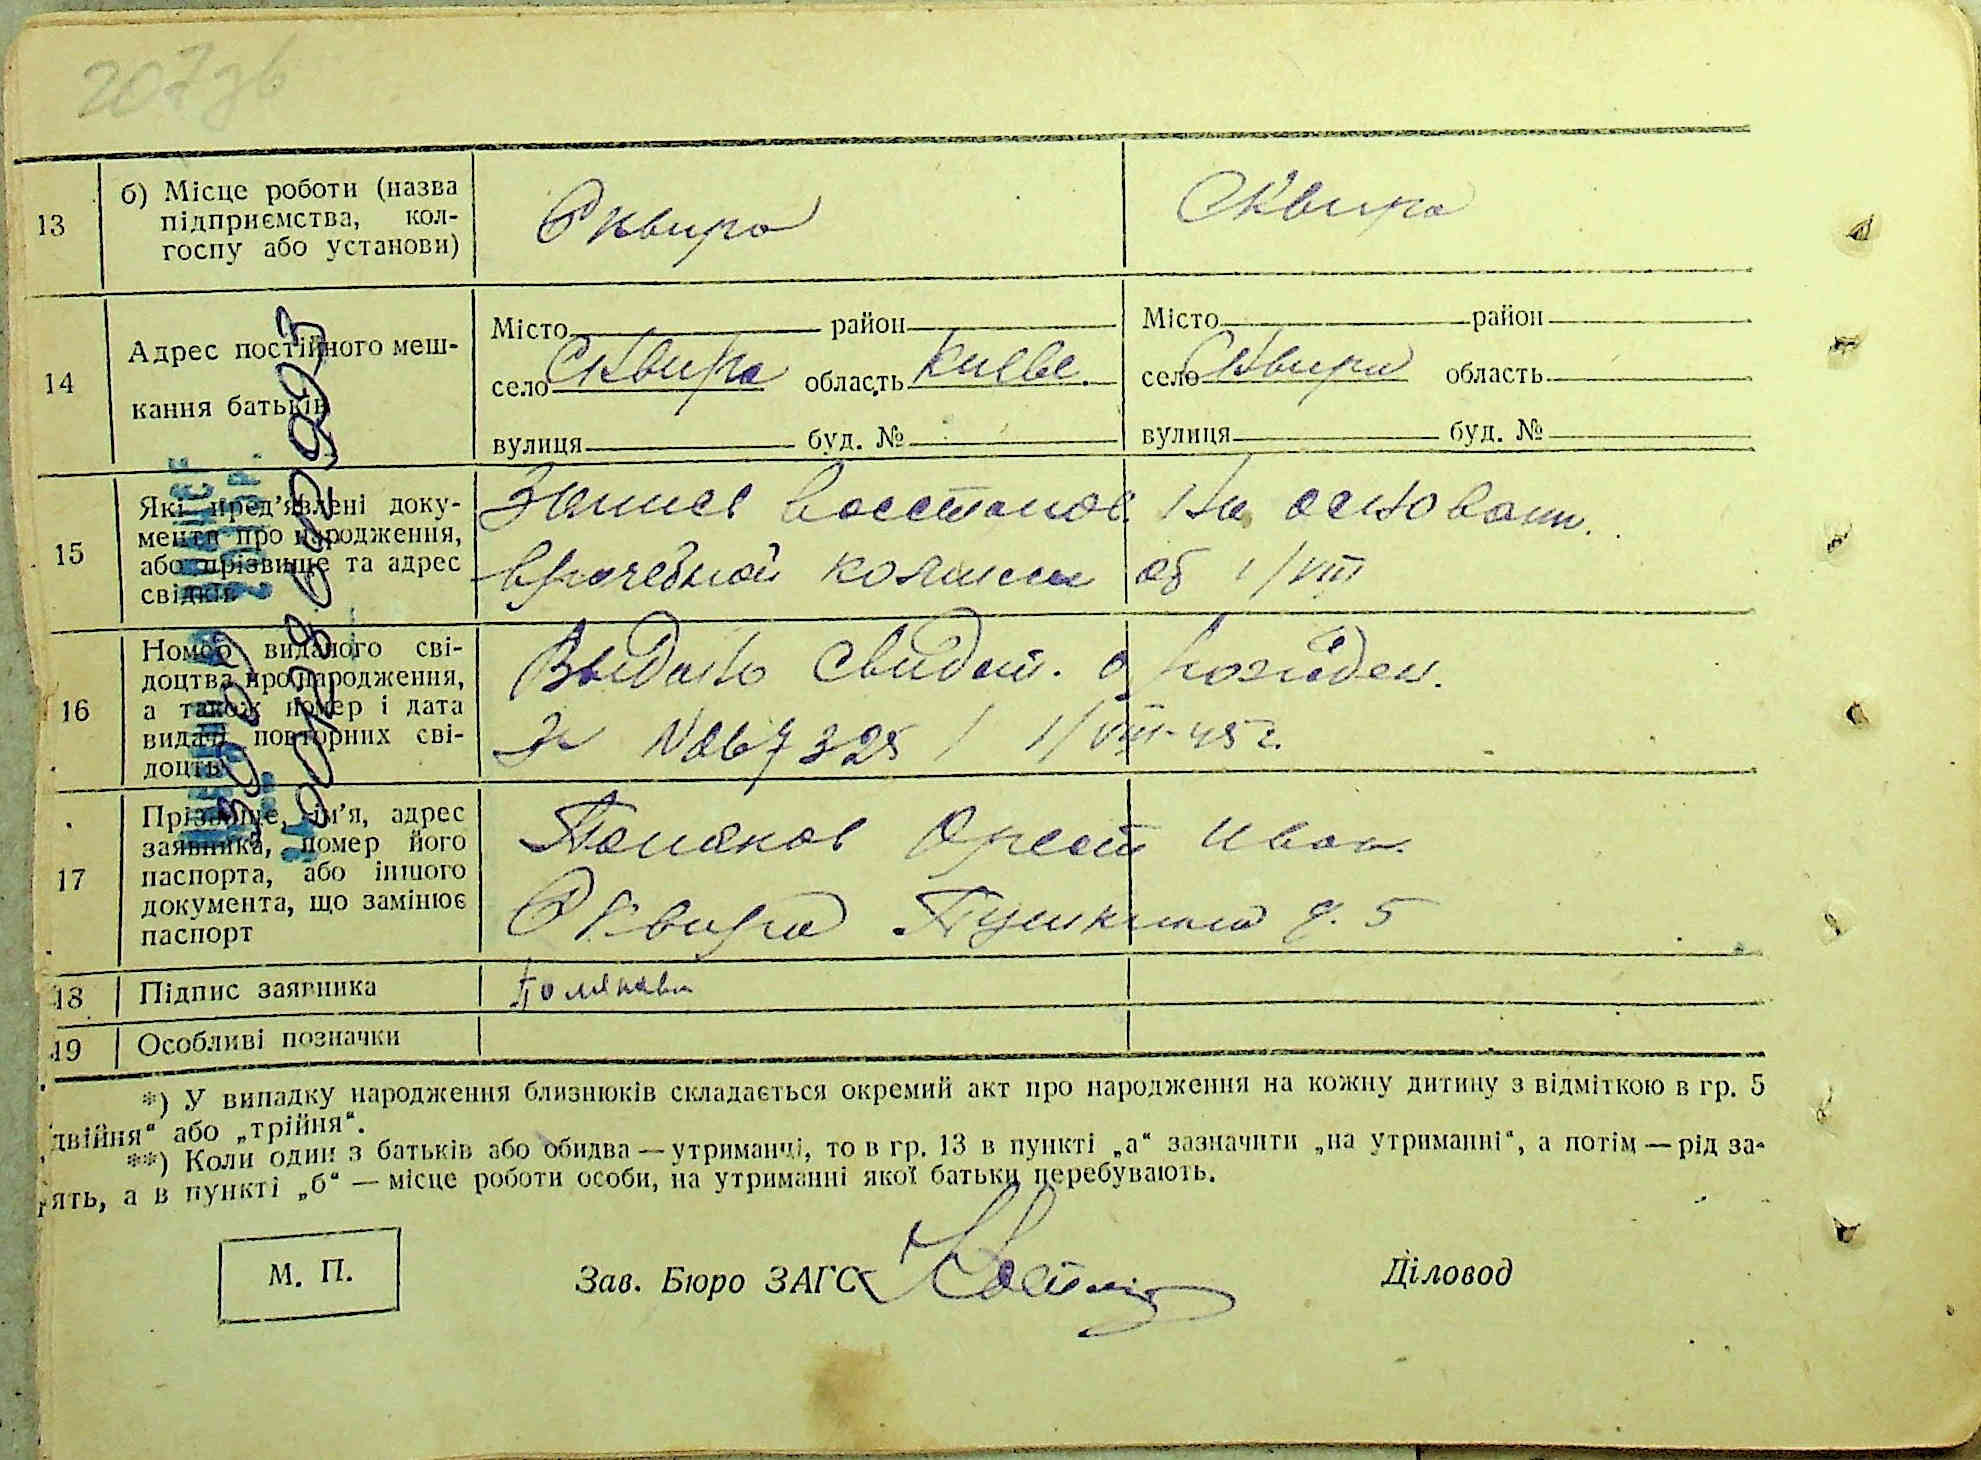 207 зв
13 б) Місце роботи (назва підприємства, колгоспу або установи) Сквира Сквира
14 Адрес постійного мешкання батьків
Місто район Місто район
село Сквира область Киевс. село Сквира область
вулиця буд. № вулиця буд. №
15 Які пред'явлені документи про народження, або прізвище та адрес свідків
Запись восстанов. На основани.
врачебной комисии об 1/VIII
16 Номер виданого свідоцтва про народження, а також номер і дата видачі повторних свідоцтв
Выдано свидет. о рожден.
325 / 1/VIII-45 г.
17 Прізвище, ім'я, адрес заявника, номер його паспорта, або іншого документа, що замінює паспорт
Орест Иван.
Сквира Пушкина д. 5
18 Підпис заявника
19 Особливі позначки
*) У випадку народження близнюків складається окремий акт про народження на кожну дитину з відміткою в гр. 5
двійня“ або „трійня“.
**) Коли один з батьків або обидва — утриманці, то в гр. 13 в пункті „а“ зазначити „на утриманні“, а потім — рід за-
ять, а в пункті „б“ — місце роботи особи, на утриманні якої батьки перебувають.
М. П. Зав. Бюро ЗАГС Діловод